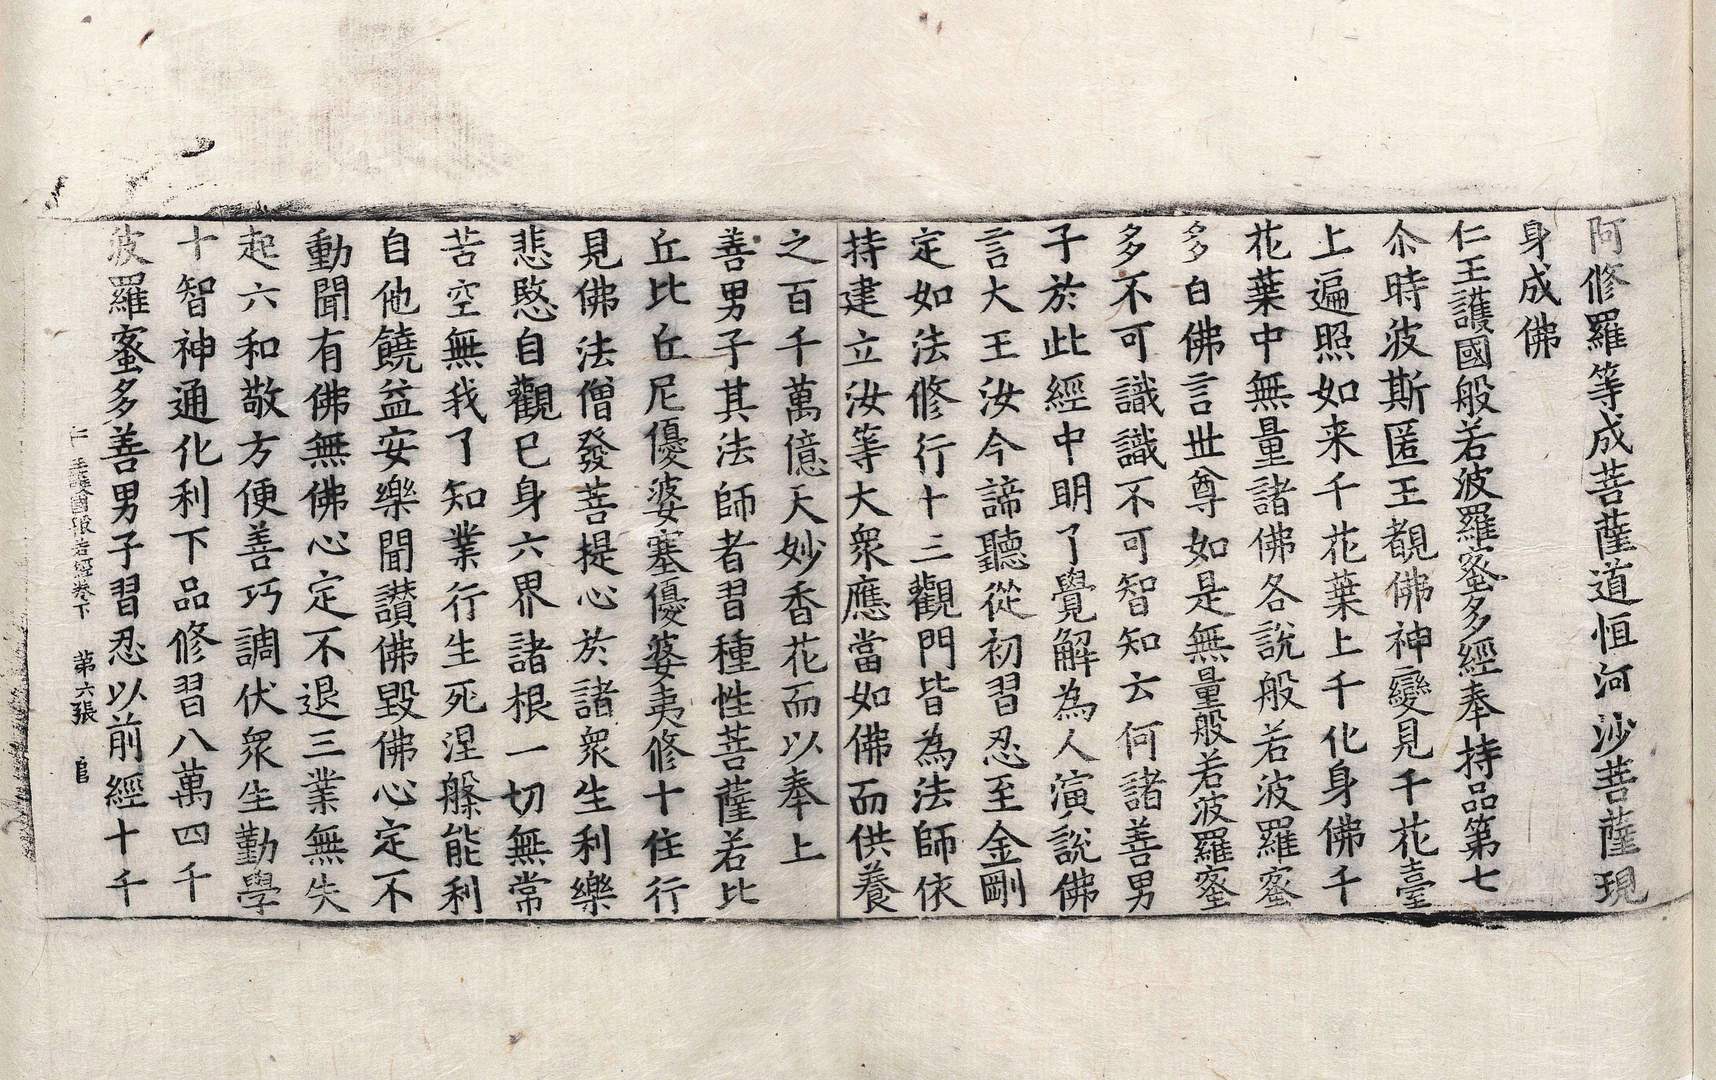 阿修羅等成菩薩道恒河沙菩薩現
身成佛
仁王護國般若波羅蜜多經奉持品第七
尒時波斯匿王覩佛神變見千花臺
上遍照如来千花葉上千化身佛千
花葉中無量諸佛各說般若波羅蜜
多白佛言世尊如是無量般若波羅蜜
多不可識識不可智知云何諸善男
子於此經中明了覺解為人演說佛
言大王汝今諦聽從初習忍至金剛
定如法修行十三觀門皆為法師依
持建立汝等大衆應當如佛而供養
之百千萬億天妙香花而以奉上
善男子其法師者習種性菩薩若比
丘比丘尼優婆塞優婆夷修十住行
見佛法僧發菩提心於諸衆生利樂
悲愍自觀已身六界諸根一切無常
苦空無我了知業行生死涅槃能利
自他饒益安樂聞讃佛毀佛心定不
動聞有佛無佛心定不退三業無失
起六和敬方便善巧調伏衆生勤學
十智神通化利下品修習八萬四千
波羅蜜多善男子習忍以前經十千
仁王護國般若經卷下 第六張 官